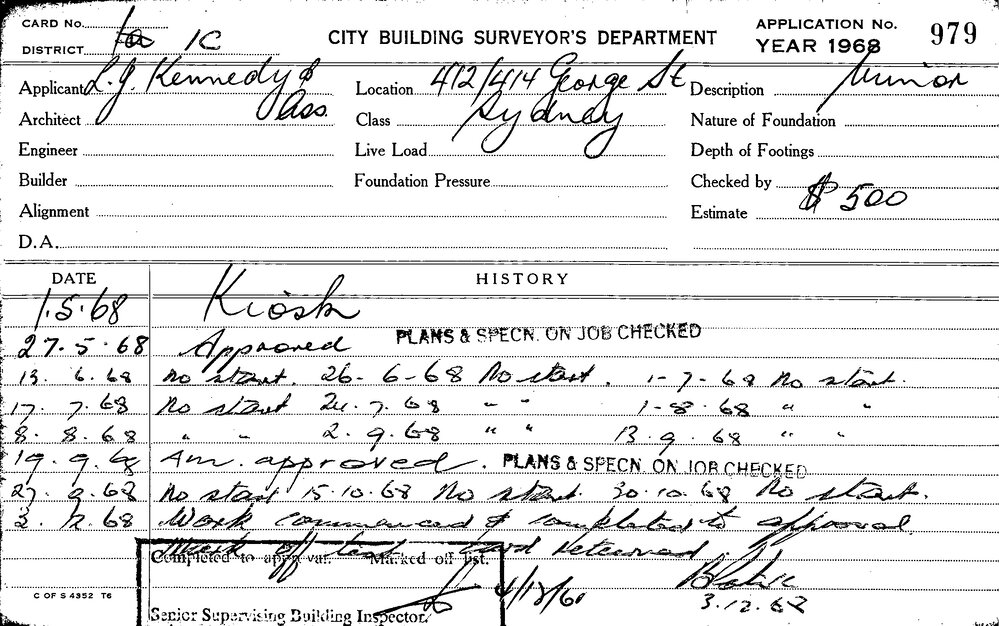 CARD No. 1
DISTRICT 1C
CITY BUILDING SURVEYOR'S DEPARTMENT
APPLICATION No. 979
YEAR 1968
Applicant L.J. Kennedy & Ass.
Location 412/414 George St Sydney
Description Minor
Architect
Class
Nature of Foundation
Engineer
Live Load
Depth of Footings
Builder
Foundation Pressure
Checked by
Alignment
Estimate $ 500
D.A.
DATE HISTORY
1.5.68 Kiosk
27.5.68 Approved PLANS & SPECN. ON JOB CHECKED
13.6.68 No start. 26-6-68 No start. 1-7-68 No start.
17.7.68 No start 24.7.68 " " 1-8-68 " "
8.8.68 " " 2.9.68 " " 13.9.68 " "
19.9.68 Am. approved. PLANS & SPECN. ON JOB CHECKED
27.9.68 No start 15.10.68 No start. 30.10.68 No start.
3.12.68 Work commenced & completed to approval
Mark off list Card returned
Completed to approval. Marked off list.
4/12/68
3.12.68
C OF S 4352 T6
Senior Supervising Building Inspector.